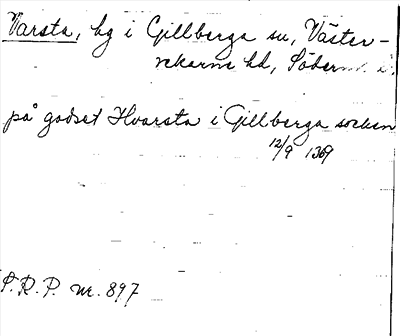 Varsta, by i Gillberga sn, Väster-
rekarne hd, Söderm.
på godset Hvarsta i Gillberga socken
12/9 1369
S.R.P. nr. 897